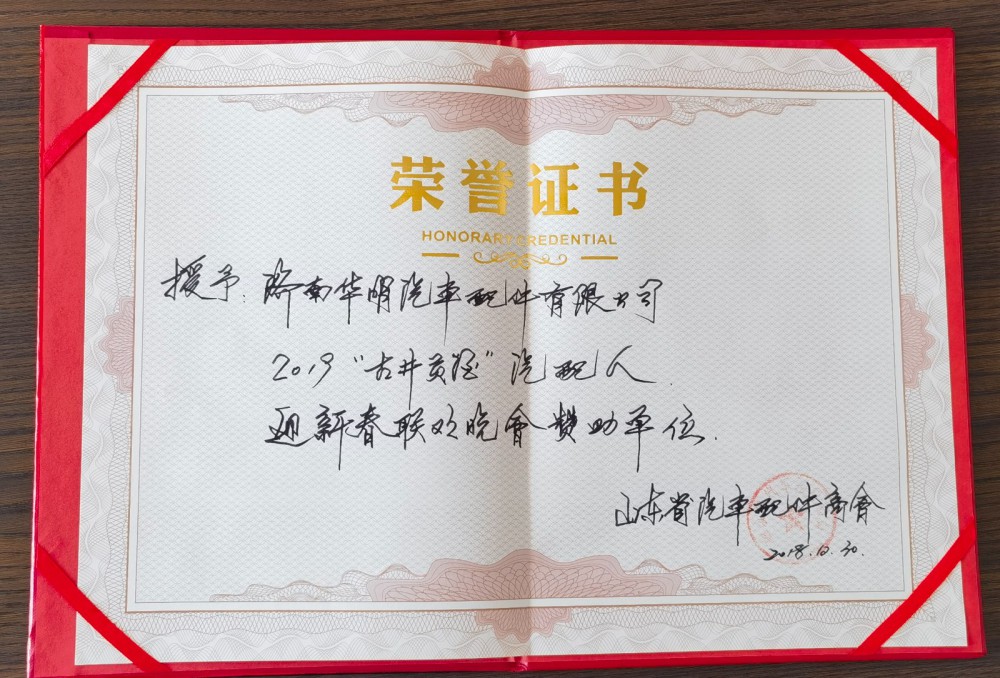 荣誉证书
HONORARY CREDENTIAL
授予:济南华明汽车配件有限公司
2019“古井贡酒”汽配人
迎新春联欢晚會赞助单位.
山东省汽车配件商會
2018.12.30.